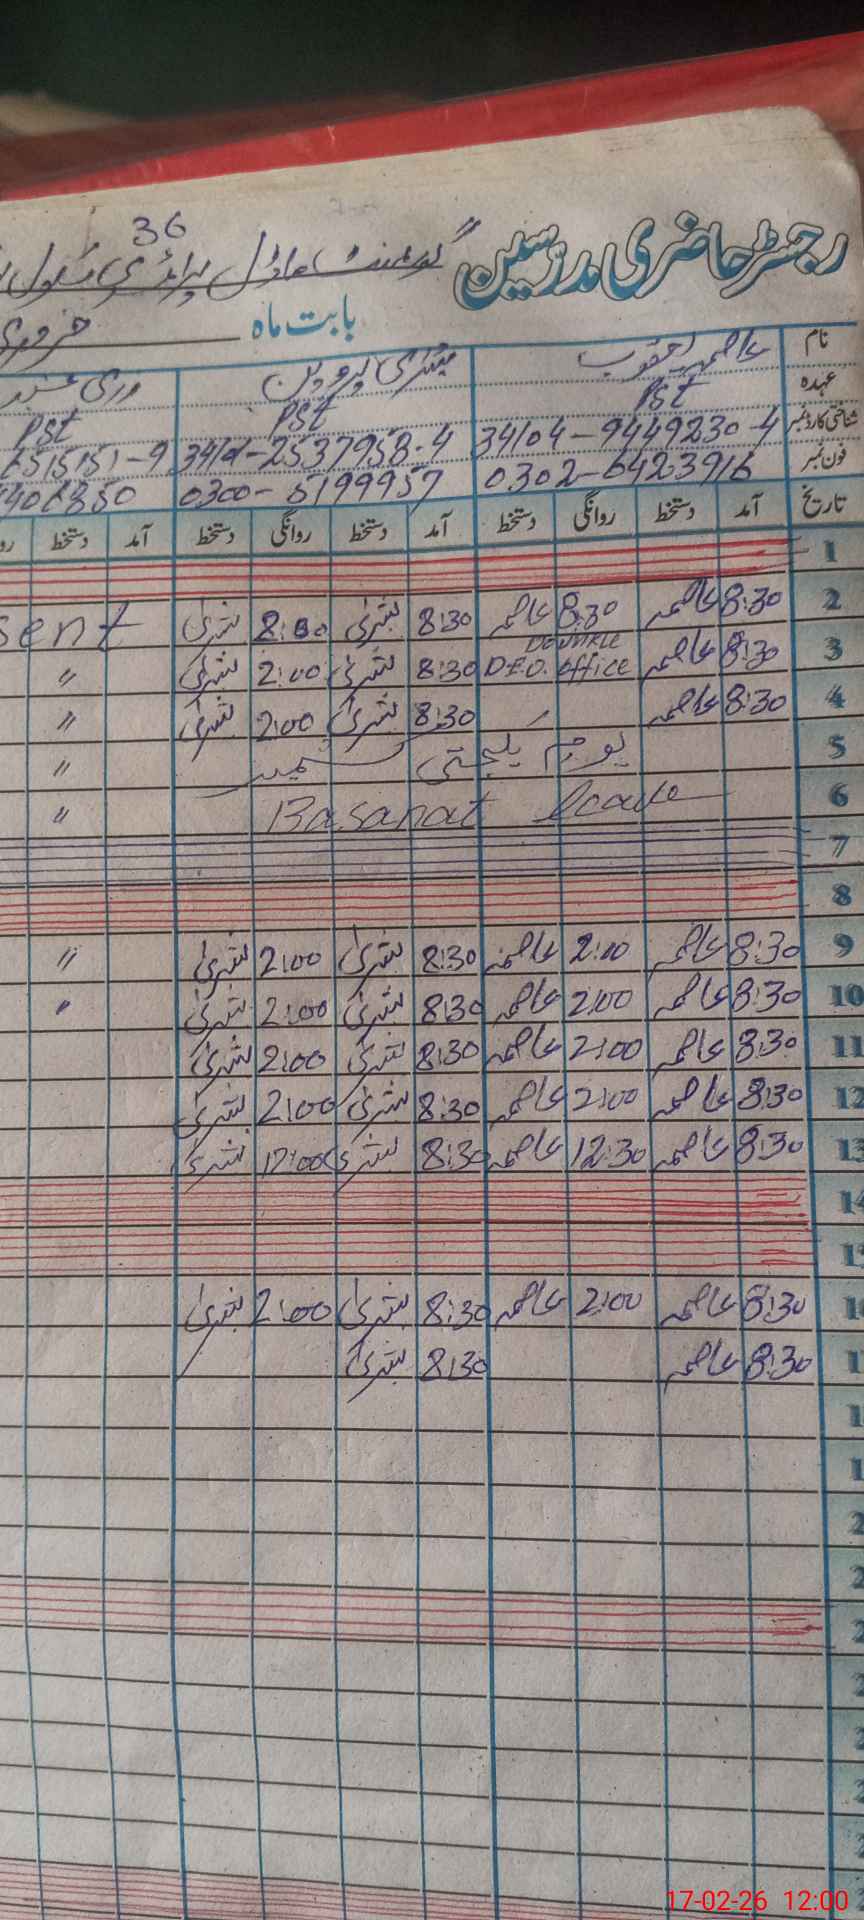 36
رجسٹر حاضری مدرسین گورنمنٹ ماڈل پرائمری سکول
بابت ماہ فروری
نام عاصمہ یعقوب بشریٰ پروین
عہدہ Pst Pst Pst
شناختی کارڈ نمبر 34104-9449230-4 3410-2537958-4 515151-9
فون نمبر 0302-6423916 0300-6199957
تاریخ آمد دستخط روانگی دستخط آمد دستخط روانگی دستخط آمد دستخط
1
2 8:30 عاصمہ 8:30 عاصمہ 8:30 بشریٰ 8:00 بشریٰ sent
3 8:30 عاصمہ D.E.O. office 8:30 بشریٰ 2:00 بشریٰ "
4 8:30 عاصمہ 8:30 بشریٰ 2:00 بشریٰ "
5 یوم یکجہتی کشمیر "
6 Basanat leave "
7
8
9 8:30 عاصمہ 2:00 عاصمہ 8:30 بشریٰ 2:00 بشریٰ "
10 8:30 عاصمہ 2:00 عاصمہ 8:30 بشریٰ 2:00 بشریٰ "
11 8:30 عاصمہ 2:00 عاصمہ 8:30 بشریٰ 2:00 بشریٰ
12 8:30 عاصمہ 2:00 عاصمہ 8:30 بشریٰ 2:00 بشریٰ
13 8:30 عاصمہ 12:30 عاصمہ 8:30 بشریٰ 12:00 بشریٰ
14
1
1 8:30 عاصمہ 2:00 عاصمہ 8:30 بشریٰ 2:00 بشریٰ
1 8:30 عاصمہ 8:30 بشریٰ
1
1
2
2
2
2
2
2
2
17-02-26 12:00